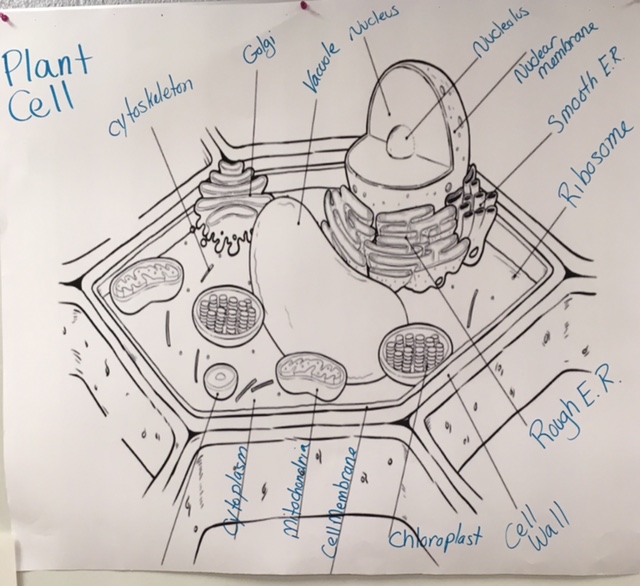 Plant
Cell
Cytoskeleton
Golgi
Vacuole
Nucleus
Nucleolus
Nuclear
membrane
Smooth E.R.
Ribosome
Rough E.R.
Cell
Wall
Chloroplast
Cell Membrane
Mitochondria
Cytoplasm